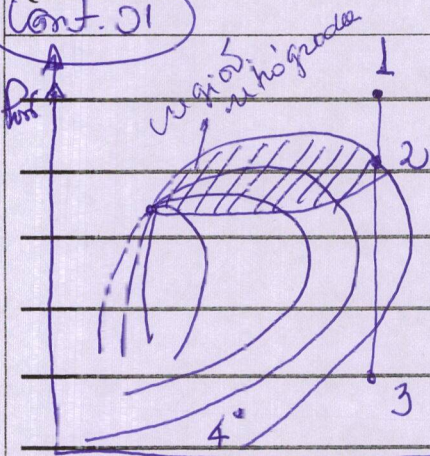 Cont. 01
região
retrógrada
1
2
3
4